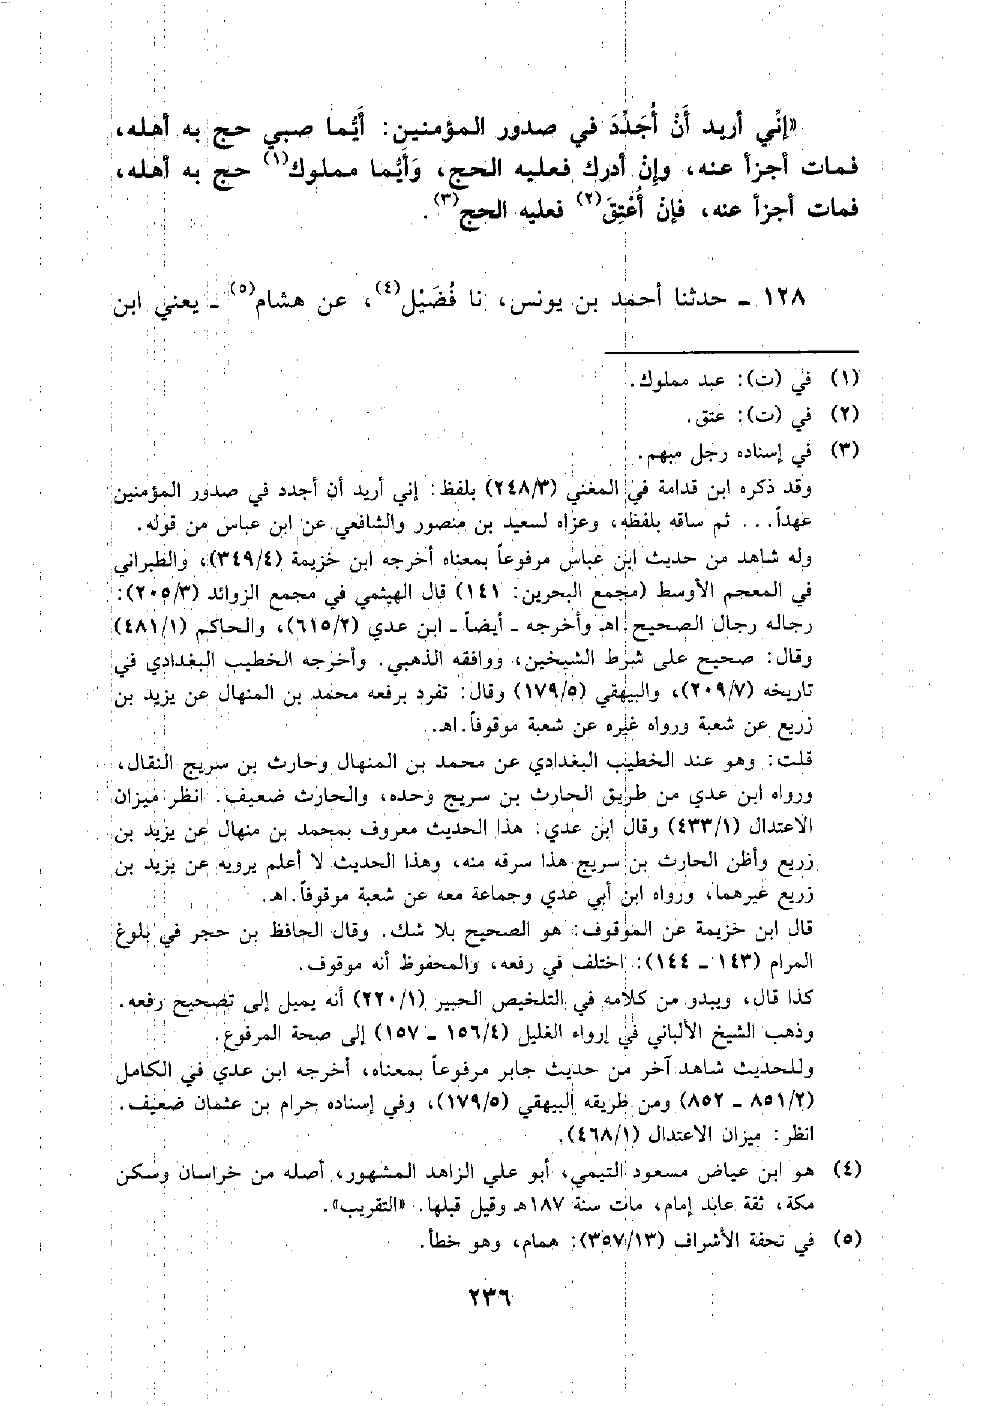 «إنِّي أريد أَنْ أُجَدِّدَ في صدور المؤمنين: أَيُّما صبي حج به أهله،
فمات أجزأ عنه، وإنْ أدرك فعليه الحج، وَأَيُّما مملوك(١) حج به أهله،
فمات أجزأ عنه، فإنْ أُعْتِقَ(٢) فعليه الحج(٣).
١٢٨ ـ حدثنا أحمد بن يونس، نا فُضَيْل(٤)، عن هشام(٥) ـ يعني ابن
(١) في (ت): عبد مملوك.
(٢) في (ت): عتق.
(٣) في إسناده رجل مبهم.
وقد ذكره ابن قدامة في المغني (٢٤٨/٣) بلفظ: إني أريد أن أجدد في صدور المؤمنين
عهداً... ثم ساقه بلفظه، وعزاه لسعيد بن منصور والشافعي عن ابن عباس من قوله.
وله شاهد من حديث ابن عباس مرفوعاً بمعناه أخرجه ابن خزيمة (٣٤٩/٤)، والطبراني
في المعجم الأوسط (مجمع البحرين: ١٤١) قال الهيثمي في مجمع الزوائد (٢٠٥/٣):
رجاله رجال الصحيح اهـ وأخرجه ـ أيضاً ـ ابن عدي (٦١٥/٢)، والحاكم (٤٨١/١)
وقال: صحيح على شرط الشيخين، ووافقه الذهبي. وأخرجه الخطيب البغدادي في
تاريخه (٢٠٩/٧)، والبيهقي (١٧٩/٥) وقال: تفرد برفعه محمد بن المنهال عن يزيد بن
زريع عن شعبة ورواه غيره عن شعبة موقوفاً. اهـ.
قلت: وهو عند الخطيب البغدادي عن محمد بن المنهال وحارث بن سريج النقال،
ورواه ابن عدي من طريق الحارث بن سريج وحده، والحارث ضعيف. انظر ميزان
الاعتدال (٤٣٣/١) وقال ابن عدي: هذا الحديث معروف بمحمد بن منهال عن يزيد بن
زريع وأظن الحارث بن سريج هذا سرقه منه، وهذا الحديث لا أعلم يرويه عن يزيد بن
زريع غيرهما، ورواه ابن أبي عدي وجماعة معه عن شعبة موقوفاً. اهـ.
قال ابن خزيمة عن الموقوف: هو الصحيح بلا شك. وقال الحافظ بن حجر في بلوغ
المرام (١٤٣ ـ ١٤٤): اختلف في رفعه، والمحفوظ أنه موقوف.
كذا قال، ويبدو من كلامه في التلخيص الحبير (٢٢٠/١) أنه يميل إلى تصحيح رفعه.
وذهب الشيخ الألباني في إرواء الغليل (١٥٦/٤ ـ ١٥٧) إلى صحة المرفوع.
وللحديث شاهد آخر من حديث جابر مرفوعاً بمعناه، أخرجه ابن عدي في الكامل
(٨٥١/٢ ـ ٨٥٢) ومن طريقه البيهقي (١٧٩/٥)، وفي إسناده حرام بن عثمان ضعيف.
انظر: ميزان الاعتدال (٤٦٨/١).
(٤) هو ابن عياض مسعود التيمي، أبو علي الزاهد المشهور، أصله من خراسان وسكن
مكة، ثقة عابد إمام، مات سنة ١٨٧هـ وقيل قبلها. «التقريب».
(٥) في تحفة الأشراف (٣٥٧/١٣): همام، وهو خطأ.
٢٣٦